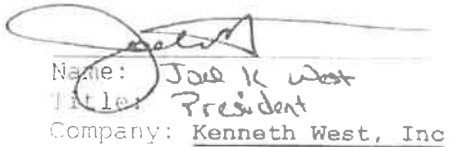 Name: Joel K West
Title: President
Company: Kenneth West, Inc